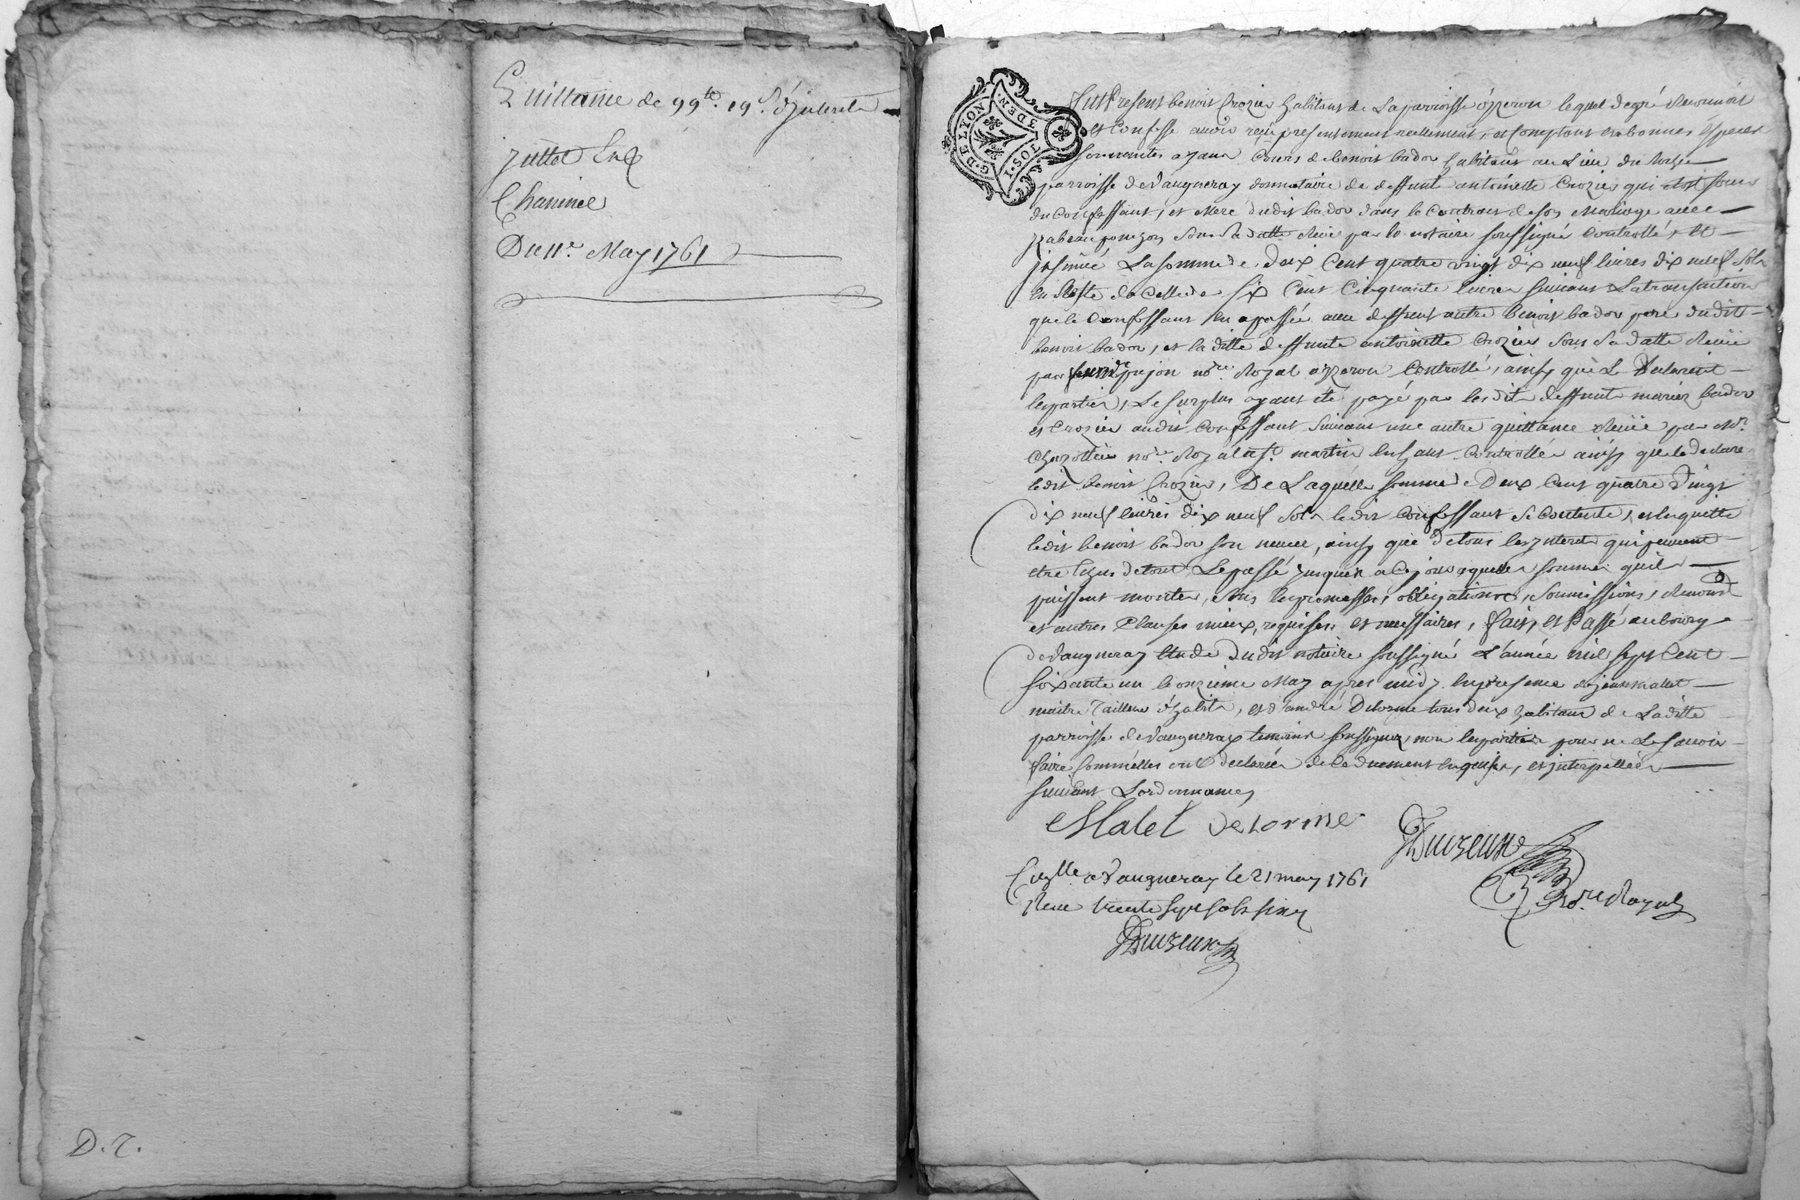 Quittance de 99lt 19s d'Interet
Juttet
Charinel
Du 11e May 1761
D. 7.
G. DE LYON
3 DEN.
JOS. I
Fut Present benoit Crozier habitant de La parroisse d'yzeron lequel de gré Reconnoit
et Confesse avoir reçu presentement reellement, et Comptant en bonnes Especes
sonnantes ayant Cours de benoit bador habitant au Lieu du
parroisse de Vaugneray donnataire de deffunte antoinette Crozier qui etoit soeur
du Confessant, et Mere du dit bador dans le Contrat de son Mariage avec
yzabeau ponçon sous Sa datte Reçu par le notaire soussigné Controllé, et
insinué La somme de deux Cent quatre vingt dix neuf livres dix neuf sols
en Reste de Celle de Six Cent Cinquante livres suivant La transaction
que le Confessant en a passée avec deffunt autre benoit bador pere du dit
benoit bador, et la ditte deffunte antoinette Crozier sous Sa datte Reçüe
par pujon nore Royal a yzeron Controllé, ainsy que Le Declarent
les parties, Le surplus ayant eté payé par les dits deffunts mariés bador
et Crozier au dit Confessant suivant une autre quittance Reçüe par Me
nore Royal a St martin en haut Controllée ainsy que le declare
le dit benoit Crozier, De Laquelle somme de Deux Cent quatre Vingt
dix neuf livres dix neuf sols le dit Confessant se Contente, et en quitte
le dit benoit bador son neveu, ainsy que de tous les interets qui peuvent
etre echus de tout Le passé jusques a Ce jour a quelles sommes qu'ils
puissent monter, sous les promesses, obligations, soumissions, Renond
et autres Clauses mieux, requises et necessaires, fait, et Passé au bourg
de Vaugneray Etude du dit notaire soussigné L'année mil sept Cent
soixante un le onzieme May apres midy. en presence de jean mallet
maitre Tailleur d'habits, et d'andré Delorme tous deux habitans de La ditte
parroisse de Vaugneray temoins soussignés, non les parties pour ne Le savoir
faire Comm'elles ont declarées de Ce duement enquises, et interpellées
suivant L'ordonnance
Malet Delorme
Duizeux
Nore Royal
Cllé a Vaugneray le 21 may 1761
Reçu trente sept sols six d
Duizeux